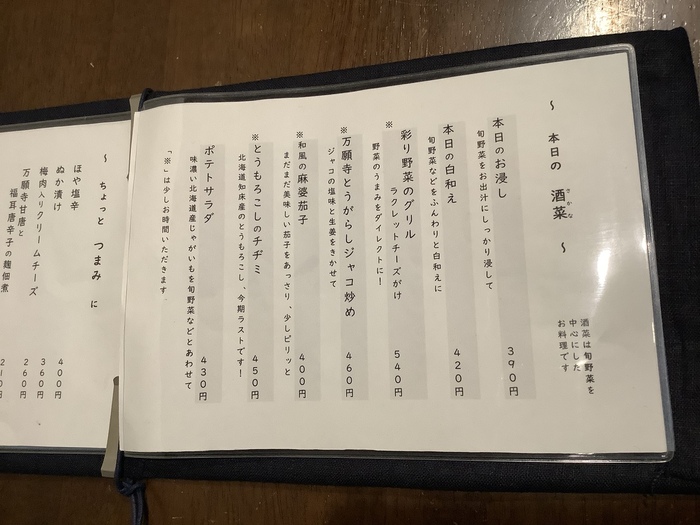 〜 本日の 酒菜 〜
さかな
酒菜は旬野菜を
中心にした
お料理です
本日のお浸し 390円
旬野菜をお出汁にしっかり浸して
本日の白和え 420円
旬野菜などをふんわりと白和えに
※彩り野菜のグリル
ラクレットチーズがけ 540円
野菜のうまみをダイレクトに!
※万願寺とうがらしジャコ炒め 460円
ジャコの塩味と生姜をきかせて
※和風の麻婆茄子 400円
まだまだ美味しい茄子をあっさり、少しピリッと
※とうもろこしのチヂミ 450円
北海道知床産のとうもろこし、今期ラストです!
ポテトサラダ 430円
味濃い北海道産じゃがいもを旬野菜などとあわせて
「※」は少しお時間いただきます
〜 ちょっと つまみ に
ほや塩辛 400円
ぬか漬け 360円
梅肉入りクリームチーズ 260円
万願寺甘唐と
福耳唐辛子の麹佃煮